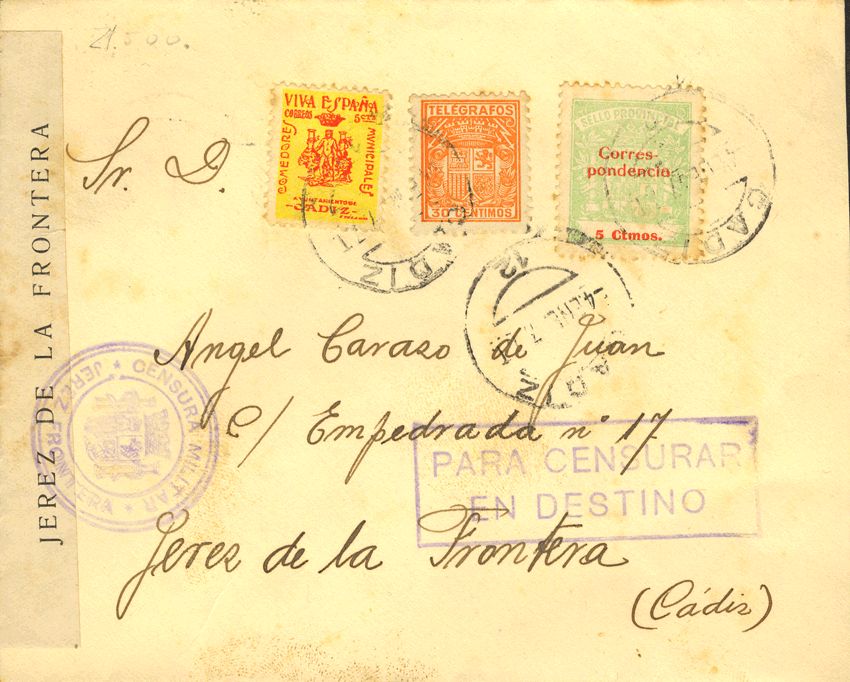 21.500.
VIVA ESPAÑA
CORREOS 5 cts
COMEDORES
MUNICIPALES
AYUNTAMIENTO DE
CADIZ
TELÉGRAFOS
30 CENTIMOS
SELLO PROVINCIAL
Corres-
pondencia
5 Ctmos.
CADIZ
CADIZ
12
Sr. D.
Angel Carazo de Juan
C/ Empedrada nº 17
Jerez de la Frontera
(Cádiz)
PARA CENSURAR
EN DESTINO
JEREZ DE LA FRONTERA
CENSURA MILITAR
JEREZ FRONTERA